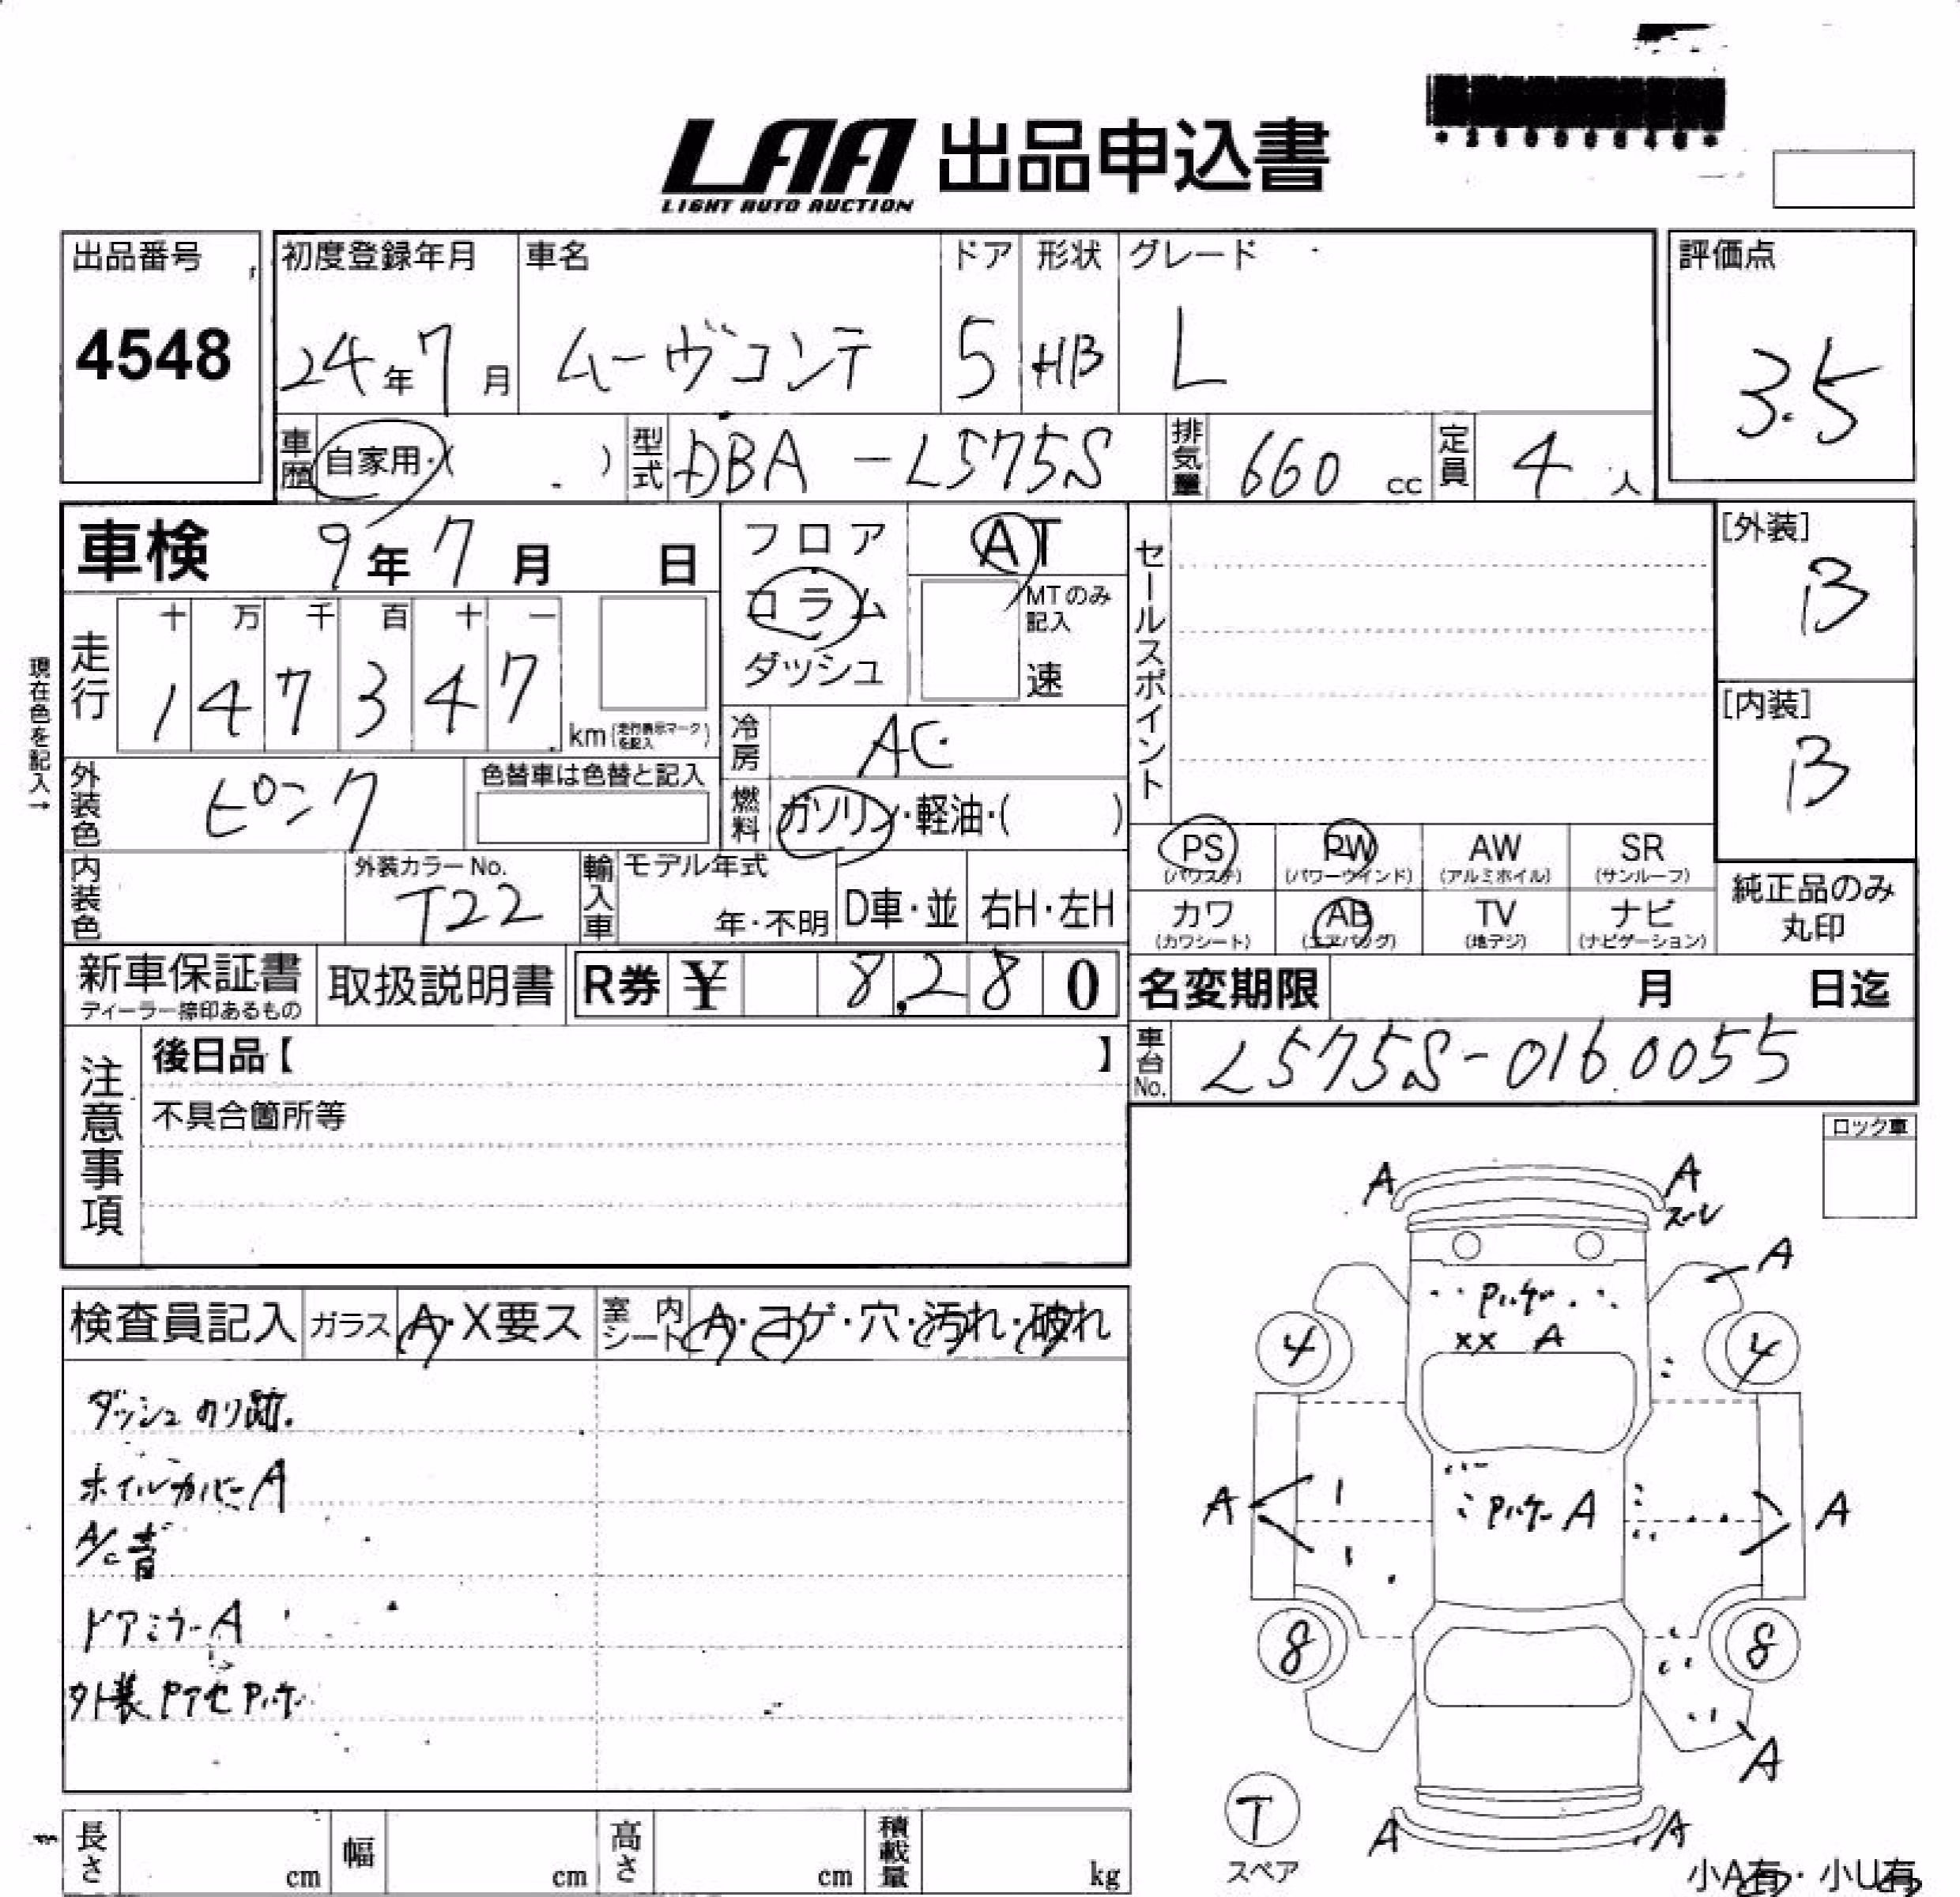 LAA 出品申込書
LIGHT AUTO AUCTION
出品番号 初度登録年月 車名 ドア 形状 グレード 評価点
4548 24年7月 ムーヴコンテ 5 HB L 3.5
車歴 自家用・( ) 型式 DBA-L575S 排気量 660 cc 定員 4 人
車検 9年7月 日 フロア AT [外装]
コラム MTのみ記入 B
ダッシュ 速
現在色を記入→
走行 十 万 千 百 十 一
1 4 7 3 4 7 km (走行表示マークを記入)
セールスポイント
[内装]
B
冷房 AC
外装色 ピンク 色替車は色替と記入 燃料 ガソリン・軽油・( )
PS PW AW SR
(パワステ) (パワーウインド) (アルミホイル) (サンルーフ)
内装色 外装カラーNo. 輸入車 モデル年式
T22 年・不明 D車・並 右H・左H
カワ AB TV ナビ 純正品のみ
(カワシート) (エアバッグ) (地デジ) (ナビゲーション) 丸印
新車保証書 取扱説明書 R券 ¥ 8,280 名変期限 月 日迄
ディーラー捺印あるもの
車台No. L575S-0160055
注意事項 後日品【 】
不具合箇所等
ロック車
A A
スレ
A
検査員記入 ガラス A・X要ス 室内シート A・コゲ・穴・汚れ・破れ
ハゲ
XX A
4 4
ダッシュ のり跡.
ホイルカバーA
A ハゲ A A
A/C音
ドアミラーA
8 8
外装
A
T
スペア
A A
長さ cm 幅 cm 高さ cm 積載量 kg
小A有・小U有